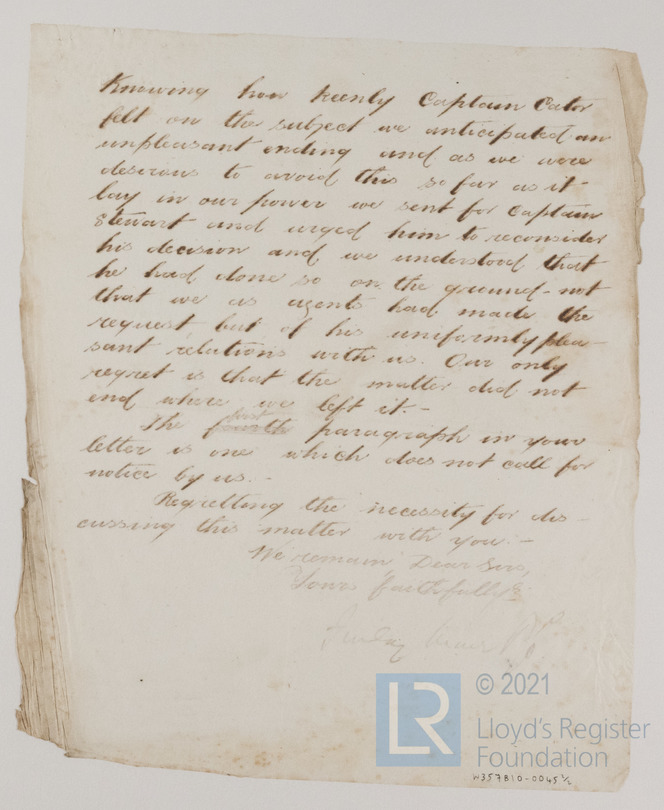 Knowing how keenly Captain Cator
felt on the subject we anticipated an
unpleasant ending and as we were
desirous to avoid this so far as it
lay in our power we sent for Captain
Stewart and urged him to reconsider
his decision and we understood that
he had done so on the ground - not
that we as agents had made the
request, but of his uniformly plea-
sant relations with us. Our only
regret is that the matter did not
end where we left it. -
last
The fourth paragraph in your
letter is one which does not call for
notice by us. -
Regretting the necessity for dis-
cussing this matter with you. -
We remain Dear Sirs,
Yours faithfully
Finlay
© 2021
LR
Lloyd's Register
Foundation
W357810-0045 1/2